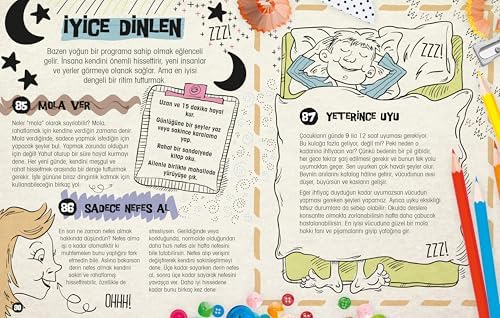 İYİCE DİNLEN
Bazen yoğun bir programa sahip olmak eğlenceli
gelir. İnsana kendini önemli hissettirir, yeni insanlar
ve yerler görmeye olanak sağlar. Ama en iyisi
dengeli bir ritim tutturmak.
ZZZ!
85 MOLA VER
Neler "mola" olarak sayılabilir? Mola,
rahatlamak için kendine verdiğin zamana denir.
Mola verdiğinde, sadece yapmak istediğin için
yapacak şeyler bul. Yapmak zorunda olduğun
için değil! Yahut oturup bir süre hayal kurmayı
dene. Her yeni günde, kendini meşgul ve
rahat hissetmek arasında bir denge tutturmak
gerekir. İşte gününe biraz dinginlik katmak için
kullanabileceğin birkaç yol:
Uzan ve 15 dakika hayal
kur.
Günlüğüne bir şeyler yaz
veya sakince karalama
yap.
Rahat bir sandalyede
kitap oku.
Ailenle birlikte mahallede
yürüyüşe çık.
86 SADECE NEFES AL
En son ne zaman nefes almak
hakkında düşündün? Nefes alma
işi o kadar otomatiktir ki
muhtemelen bunu yaptığını fark
etmedin bile. Aslına bakarsan
derin nefes almak kendini
sakin ve rahatlamış
hissettirebilir, özellikle de
stresliysen. Gerildiğinde veya
korktuğunda, normalde olduğundan
daha hızlı nefes alır hatta nefesini
bile tutabilirsin. Nefes alıp verişini
değiştirerek kendini sakinleştirmeyi
dene. Üçe kadar sayarken derin nefes
al, sonra üçe kadar sayarak nefesini
yavaşça ver. Daha iyi hissedene
kadar bunu birkaç kez dene
OHHH!
ZZZ!
87 YETERİNCE UYU
Çocukların günde 9 ila 12 saat uyuması gerekiyor.
Bu kulağa fazla geliyor, değil mi? Peki neden o
kadarına ihtiyacın var? Çünkü bedenin bir pil gibidir,
her gece tekrar şarj edilmesi gerekir ve bunun tek yolu
uyumaktan geçer. Sen uyurken çok havalı şeyler olur.
Beynin anılarını katalog hâline getirir, vücudunun ısısı
düşer, büyürsün ve kasların gelişir.
Eğer ihtiyaç duyduğun kadar uyumazsan vücudun
yapması gereken şeyleri yapamaz. Ayrıca uyku eksikliği
tatsız durumlara da sebep olabilir. Okulda dersine
konsantre olmakta zorlanabilirsin hatta daha çabucak
hastalanabilirsin. Bu yüzden, vücuduna güzel bir mola
hakkı tanı ve pijamalarını giyip yatağına gir.
ZZZ!